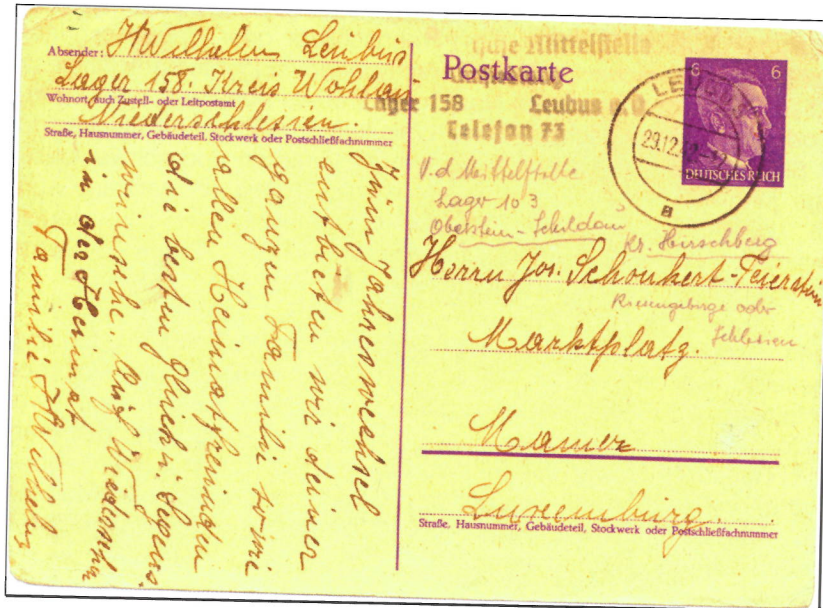 Absender: H Wilhelm Leubus
Lager 158. Kreis Wohlau
Wohnort, auch Zustell- oder Leitpostamt
Niederschlesien.
Straße, Hausnummer, Gebäudeteil, Stockwerk oder Postschließfachnummer
Zum Jahreswechsel
entbieten wir deiner
ganzen Familie sowie
allen Heimatfreunden
die besten Glück u. Segens-
wünsche. Auf Wiedersehn
in der Heimat
Familie H Wilhelm
Mittelstelle
Postkarte
Lager 158 Leubus a.O.
Telefon 73
6 6
DEUTSCHES REICH
LEUBUS
29.12.42
a
V.d Mittelstelle
Lager 103
Oberstein-Schildau
Kr. Hirschberg
Herrn Jos. Schonkert-Feierstein
Riesengebirge oder
Schlesien
Marktplatz.
Mamer
Luxemburg.
Straße, Hausnummer, Gebäudeteil, Stockwerk oder Postschließfachnummer